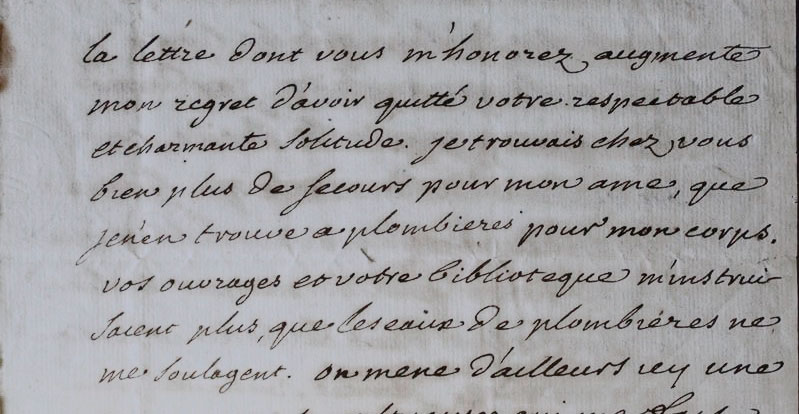 la lettre dont vous m'honorez, augmente
mon regret d'avoir quitté votre respectable
et charmante solitude. je trouvais chez vous
bien plus de secours pour mon ame, que
je n'en trouve a plombieres pour mon corps.
vos ouvrages et votre biblioteque m'instrui
saient plus, que les eaux de plombiéres ne
me soulagent. on mene d'ailleurs icy une